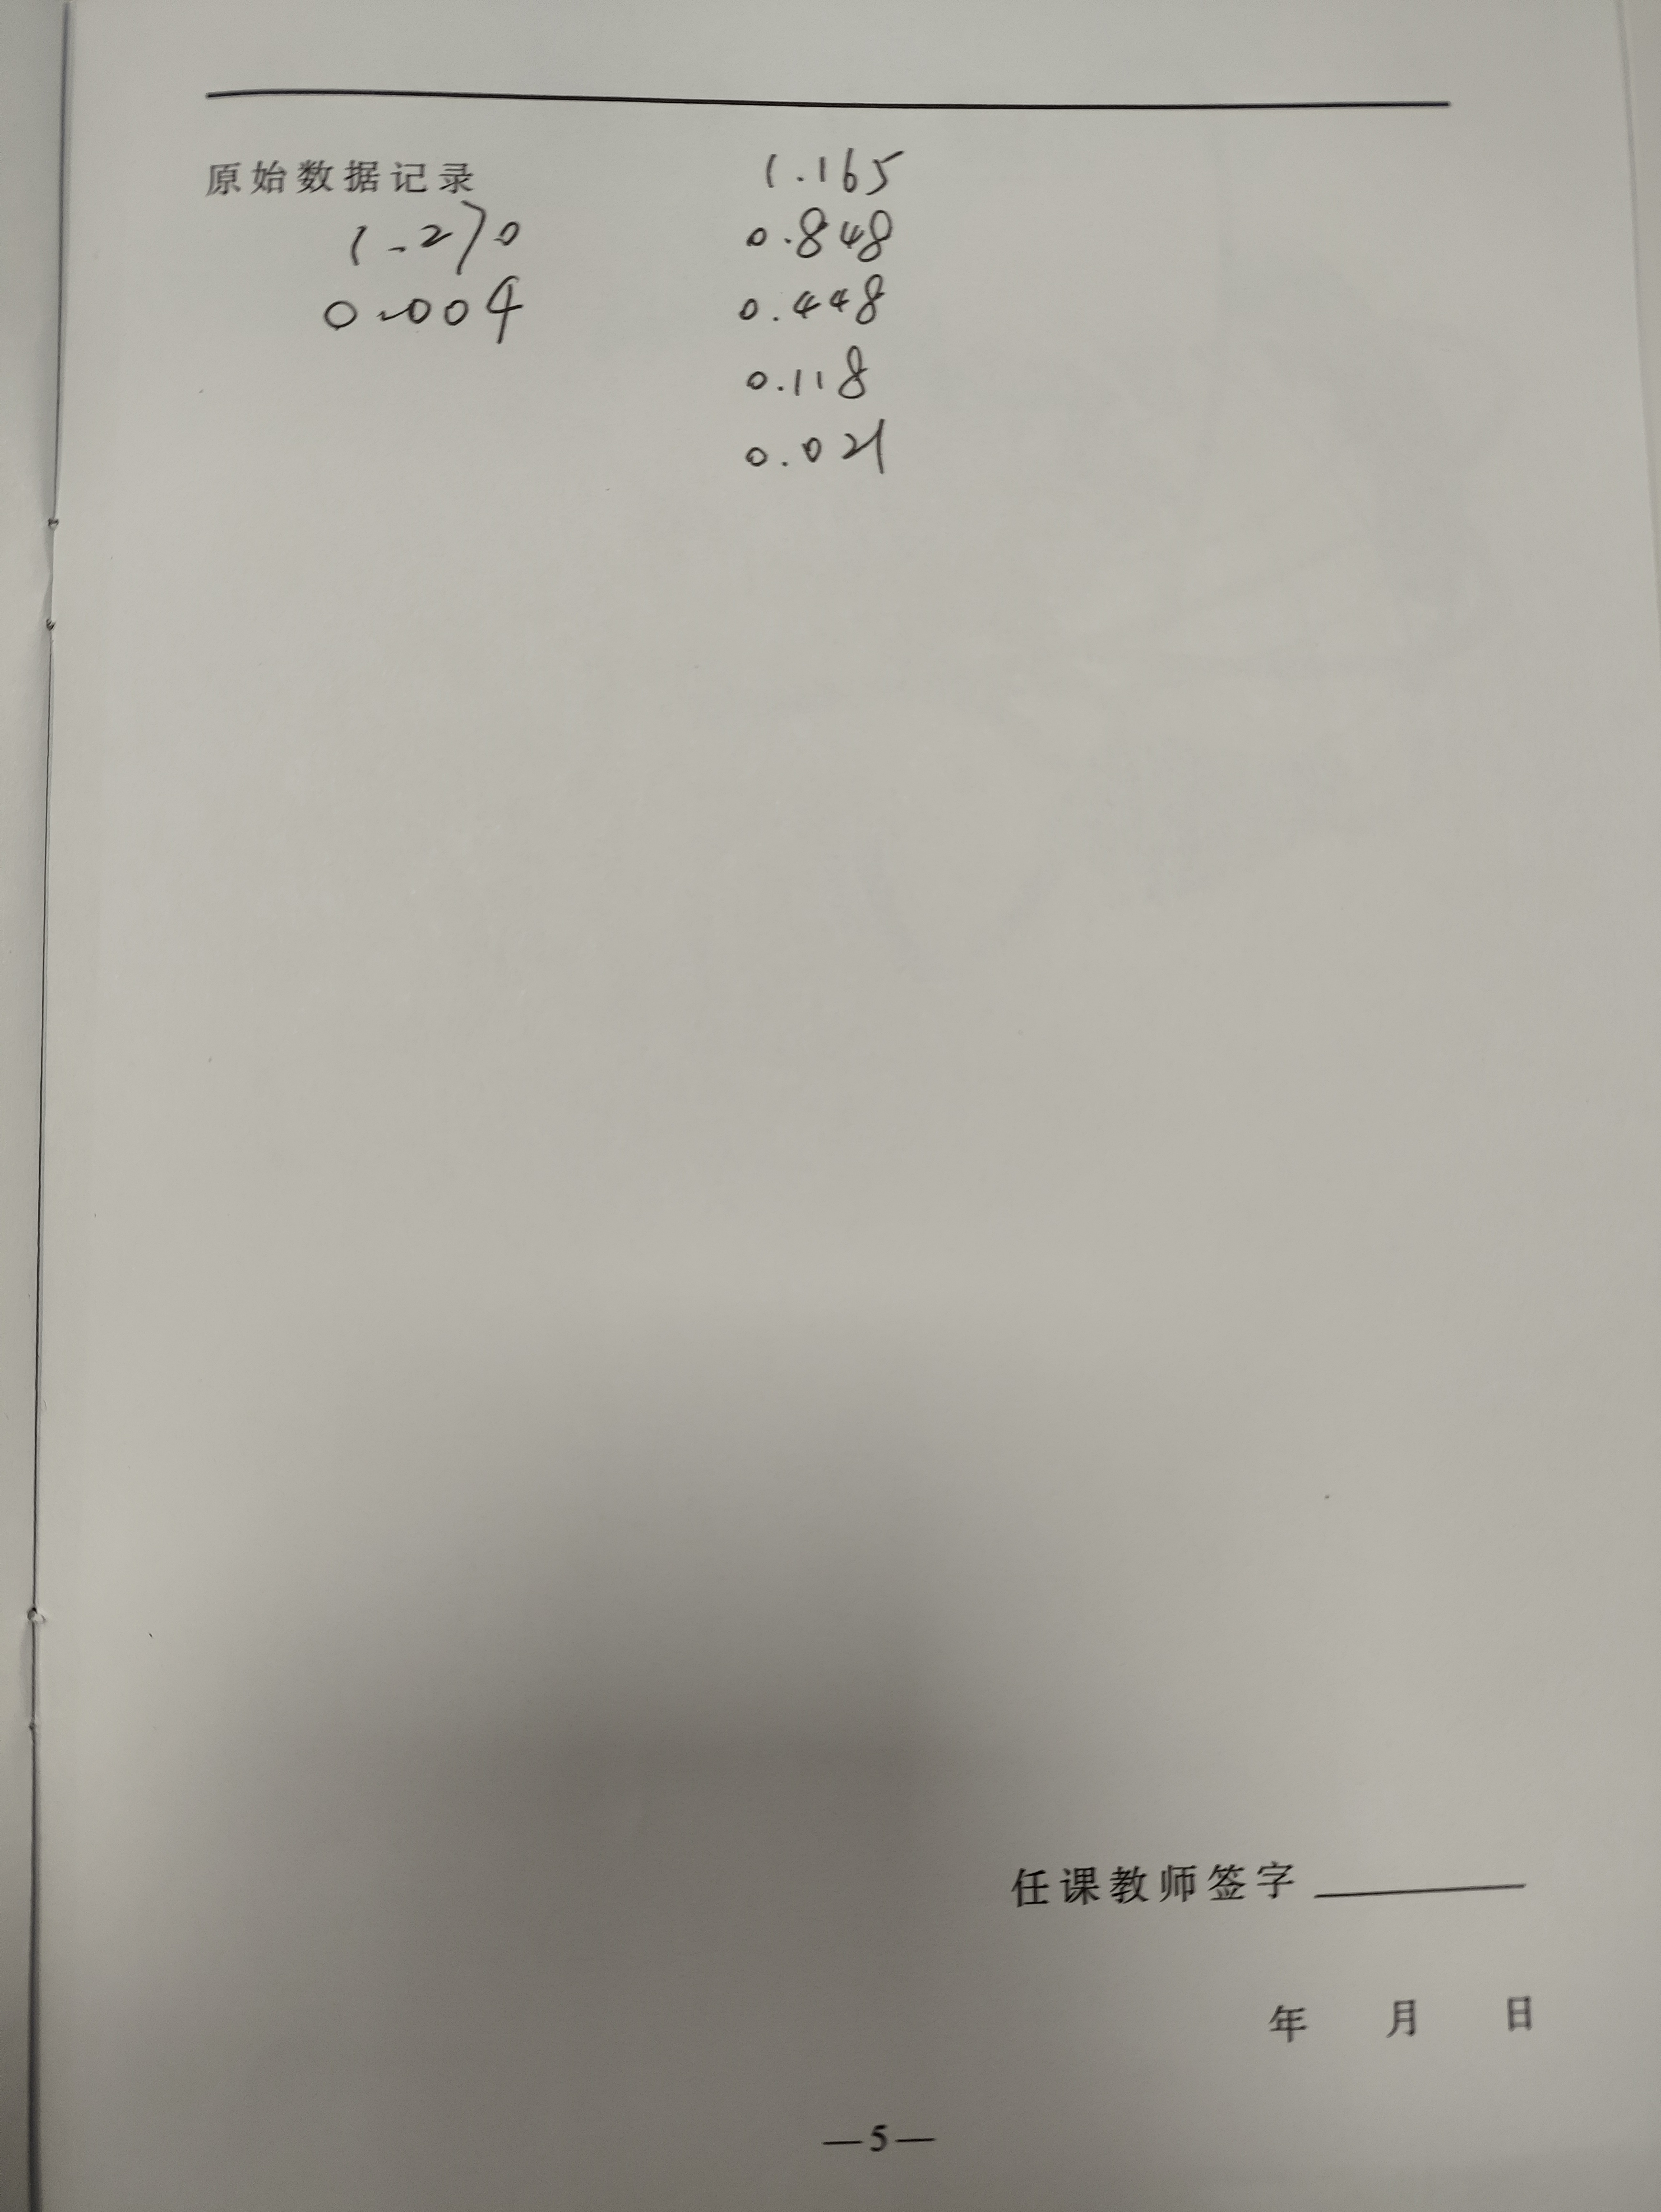 原始数据记录
1.270
0.004
1.165
0.848
0.448
0.118
0.021
任课教师签字
年 月 日
—5—